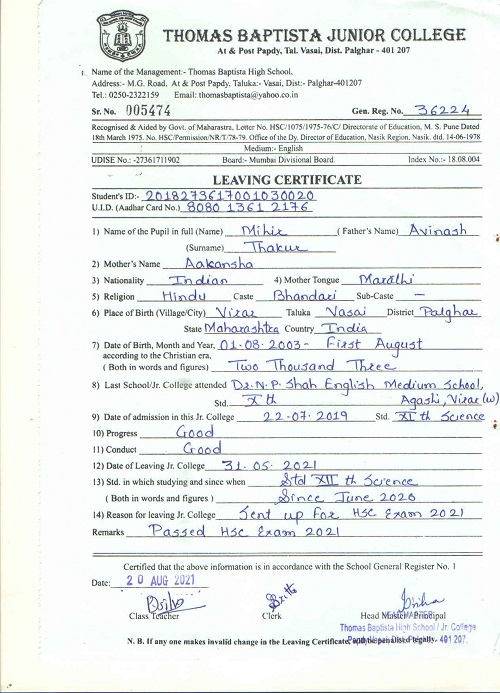 THOMAS BAPTISTA JUNIOR COLLEGE
At & Post Papdy, Tal. Vasai, Dist. Palghar - 401 207
Name of the Management:- Thomas Baptista High School,
Address:- M.G. Road, At & Post Papdy, Taluka:- Vasai, Dist:- Palghar-401207
Tel.: 0250-2322159 Email: thomasbaptista@yahoo.co.in
Sr. No. 005474 Gen. Reg. No. 36224
Recognised & Aided by Govt. of Maharastra, Letter No. HSC/1075/1975-76/C/ Directorate of Education, M. S. Pune Dated
18th March 1975. No. HSC/Permission/NR/T/78-79. Office of the Dy. Director of Education, Nasik Region. Nasik. dtd. 14-06-1978
Medium:- English
UDISE No.: -27361711902 Board:- Mumbai Divisional Board. Index No.:- 18.08.004
LEAVING CERTIFICATE
Student's ID:- 2018273617001030020
U.I.D. (Aadhar Card No.) 8080 1361 2176
1) Name of the Pupil in full (Name) Mihir (Father's Name) Avinash
(Surname) Thakur
2) Mother's Name Aakansha
3) Nationality Indian 4) Mother Tongue Marathi
5) Religion Hindu Caste Bhandari Sub-Caste —
6) Place of Birth (Village/City) Virar Taluka Vasai District Palghar
State Maharashtra Country India
7) Date of Birth, Month and Year, 01-08-2003- First August
according to the Christian era,
( Both in words and figures ) Two Thousand Three
8) Last School/Jr. College attended Dr. N. P. Shah English Medium School,
Std. Xth Agashi, Virar (w)
9) Date of admission in this Jr. College 22-07-2019 Std. XI th Science
10) Progress Good
11) Conduct Good
12) Date of Leaving Jr. College 31-05-2021
13) Std. in which studying and since when Std XII th Science
( Both in words and figures ) Since June 2020
14) Reason for leaving Jr. College Sent up for HSC Exam 2021
Remarks Passed HSC Exam 2021
Certified that the above information is in accordance with the School General Register No. 1
Date: 20 AUG 2021
Class Teacher Clerk Head Master/Principal
Thomas Baptista High School / Jr. College
N. B. If any one makes invalid change in the Leaving Certificate, 401 207.